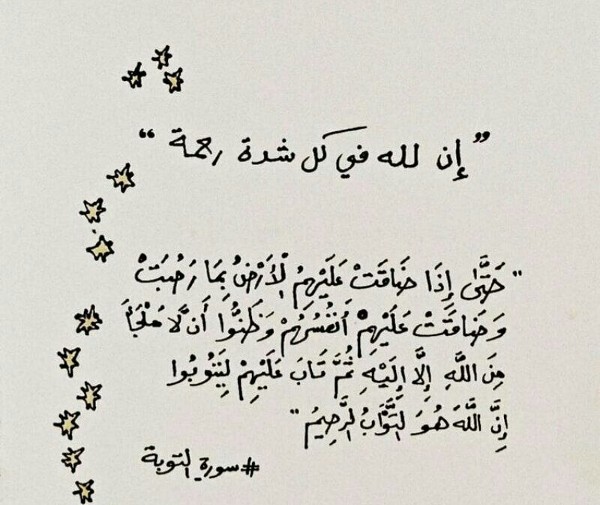 ” إن لله في كل شدة رحمة “
"حَتَّىٰ إِذَا ضَاقَتْ عَلَيْهِمُ الْأَرْضُ بِمَا رَحُبَتْ
وَضَاقَتْ عَلَيْهِمْ أَنْفُسُهُمْ وَظَنُّوا أَن لَّا مَلْجَأَ
مِنَ اللَّهِ إِلَّا إِلَيْهِ ثُمَّ تَابَ عَلَيْهِمْ لِيَتُوبُوا
إِنَّ اللَّهَ هُوَ التَّوَّابُ الرَّحِيمُ"
#سورة التوبة